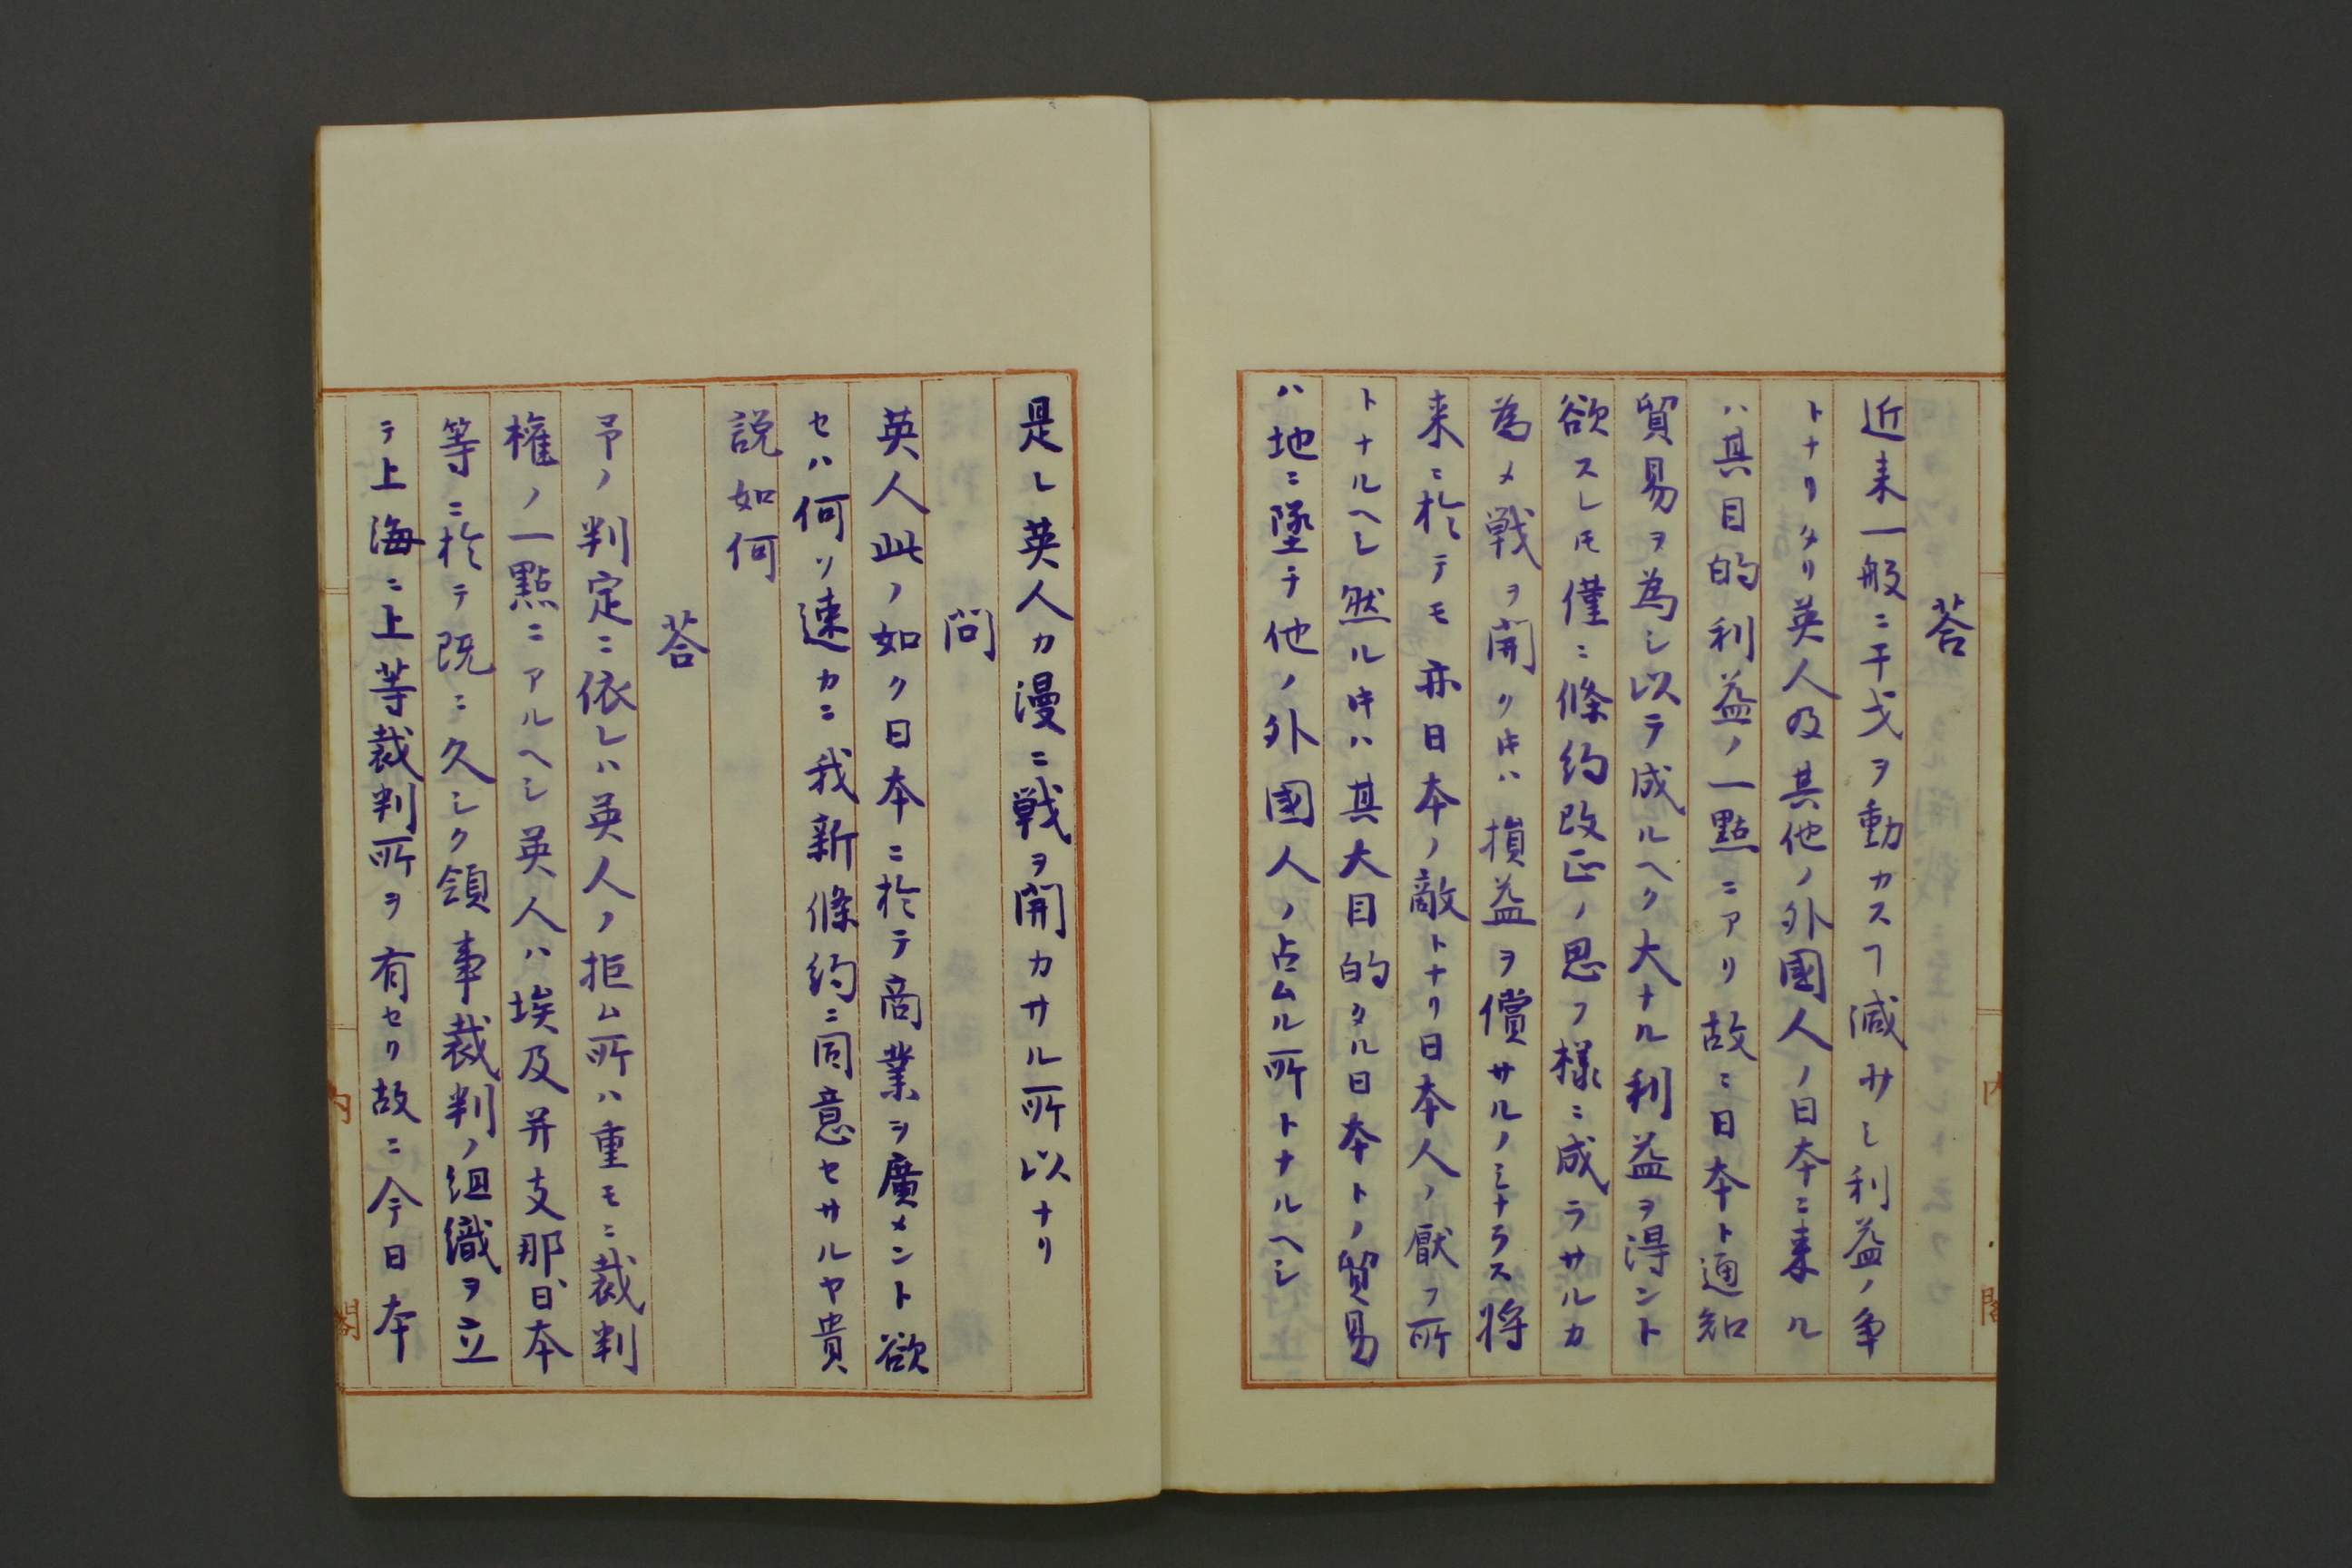 答
近来一般ニ干戈ヲ動カスヿ減サシ利益ノ争
トナリタリ英人及其他ノ外國人ノ日本ニ来ル
ハ其目的利益ノ一點ニアリ故ニ日本ト通知
貿易ヲ為シ以テ成ルヘク大ナル利益ヲ得ント
欲スレ𪜈僅ニ條約改正ノ思フ様ニ成ラサルカ
為メ戦ヲ開ク時ハ損益ヲ償サルノミナラス将
来ニ於テモ亦日本ノ敵トナリ日本人ノ厭フ所
トナルヘシ然ル時ハ其大目的タル日本トノ貿易
ハ地ニ墜テ他ノ外國人ノ占ムル所トナルヘシ
是レ英人カ漫ニ戦ヲ開カサル所以ナリ
問
英人此ノ如ク日本ニ於テ商業ヲ廣メント欲
セハ何ソ速カニ我新條約ニ同意セサルヤ貴
説如何
答
予ノ判定ニ依レハ英人ノ拒ム所ハ重モニ裁判
権ノ一點ニアルヘシ英人ハ埃及并支那日本
等ニ於テ既ニ久シク領事裁判ノ組織ヲ立
テ上海ニ上等裁判所ヲ有セリ故ニ今日本
内閣
内閣